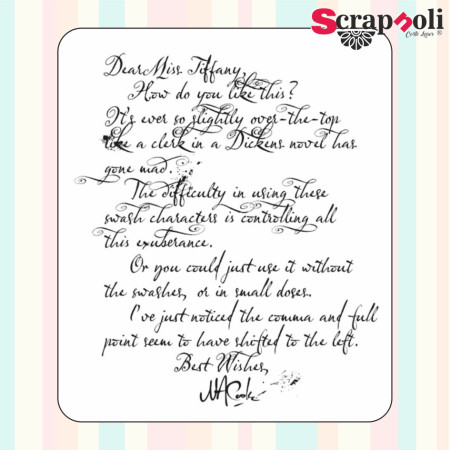 Scrapsoli
Corte Laser ®
Dear Miss Tiffany,
How do you like this?
It's ever so slightly over-the-top
like a clerk in a Dickens novel has
gone mad.
The difficulty in using these
swash characters is controlling all
this exuberance.
Or you could just use it without
the swashes, or in small doses.
I've just noticed the comma and full
point seem to have shifted to the left.
Best Wishes,